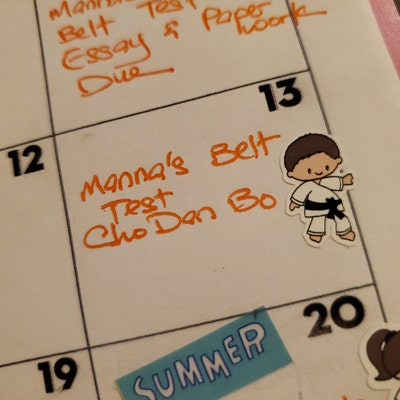 Manna's
Belt Test
Essay & Paper
work
Due
13
12
Manna's Belt
Test
Cho Dan Bo
20
19
SUMMER